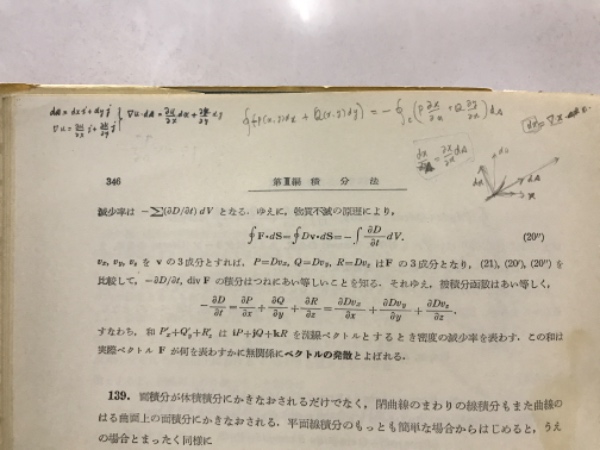 dA = dx i + dy j
∇u = ∂u/∂x i + ∂u/∂y j
∇u·dA = ∂u/∂x dx + ∂u/∂y dy
346
第Ⅲ編 積 分 法
減少率は −∑(∂D/∂t) dV となる. ゆえに, 物質不滅の原理により,
∮F•dS=∮Dv•dS=−∫ ∂D/∂t dV. (20″)
vx, vy, vz を v の3成分とすれば, P=Dvx, Q=Dvy, R=Dvz は F の3成分となり, (21), (20′), (20″) を
比較して, −∂D/∂t, div F の積分はつねにあい等しいことを知る. それゆえ, 被積分函数はあい等しく,
−∂D/∂t = ∂P/∂x + ∂Q/∂y + ∂R/∂z = ∂Dvx/∂x + ∂Dvy/∂y + ∂Dvz/∂z.
すなわち, 和 P′x+Q′y+R′z は iP+jQ+kR を流線ベクトルとするとき密度の減少率を表わす. この和は
実際ベクトル F が何を表わすかに無関係にベクトルの発散とよばれる.
139. 面積分が体積積分にかきなおされるだけでなく, 閉曲線のまわりの線積分もまた曲線の
はる曲面上の面積分にかきなおされる. 平面線積分のもっとも簡単な場合からはじめると, うえ
の場合とまったく同様に